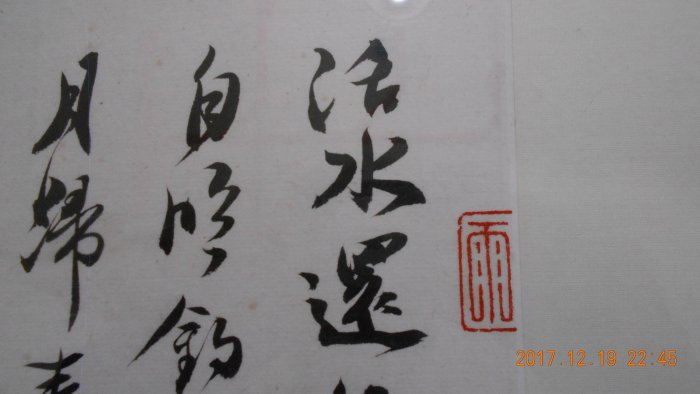 活水還
自臨釣
月歸春
2017.12.19 22:45